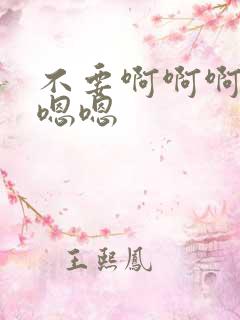 不要啊啊啊
嗯嗯
王熙鳳